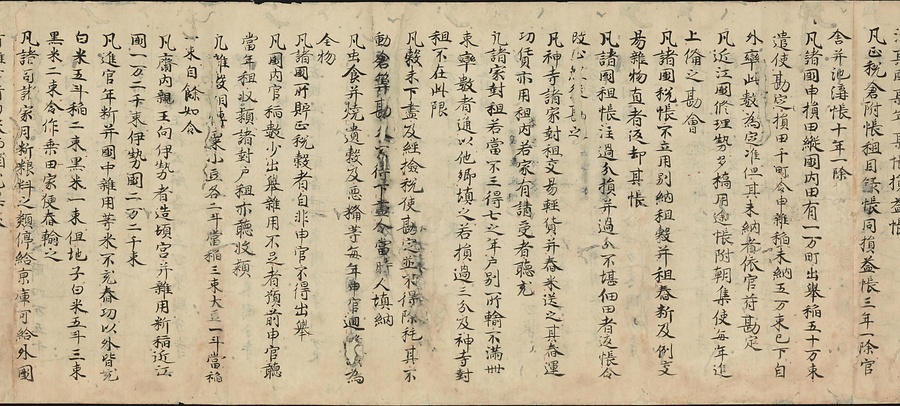 凡正税倉附帳租目録帳同損益帳三年一除官
舎并池溝帳十年一除
凡諸國申損田縦國内田有一万町出舉稲五十万束
遣使勘定損田千町令申雜稲未納五万束已下自
外率此數為定准但其未納者依官符勘定
凡近江國修理勢多橋用途帳附朝集使毎年進
上備之勘會
凡諸國税帳不立用別納租穀并租舂新及例交
易雜物直者返却其帳
凡諸國租帳注過分損并過分不堪佃田者返帳令
改
凡神寺諸家封租交易輕貨并舂米送之其舂運
功賃亦用租内若家有請受者聴充
凡諸家封租若當不三得七之年戸別所輸不満卌
束率數者通以他郷填之若損過三分及神寺封
租不在此限
凡穀未下盡及經檢税使勘定並不得除耗其不
動倉勘 不得下盡令當時人填納
凡出食并燒遺穀及悪 等毎年申官 為
全物
凡諸國所納正税穀者自非申官不得出舉
凡國内官稲數少出舉雜用不足者預前申官聴
當年租收穎諸封戸租亦聴收穎
凡 粟小豆各二斗當稲三束大豆一斗當稲
一束自餘如令
凡齋内親王向伊勢者造頓宮并雜用新稲近江
國一万二千束伊勢國二万二千束
凡進官年新并國中雜用等米不充舂功以外皆充
白米五斗稲二束黒米一束但地子白米五斗三束
黒米二束令作乗田家使舂輸之
凡諸司諸家月新粮料之類停給京庫可給外國